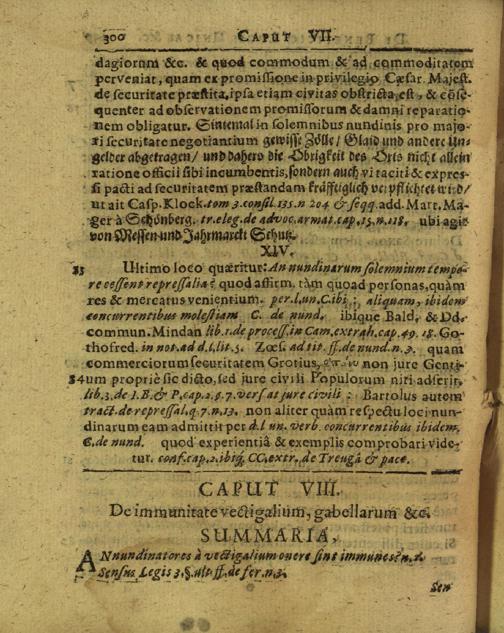 300 CAPUT VII.
dagiorum &c. & quod commodum & ad commoditatem
perveniat, quam ex promissione in privilegio Cæsar. Majest.
de securitate præstita, ipsa etiam civitas obstricta est, & cōse-
quenter ad observationem promissorum & damni reparatio-
nem obligatur. Sintemal in solemnibus nundinis pro majo-
ri securitate negotiantium gewisse Zölle/ Glaid und andere Un-
gelder abgetragen/ und dahero die Obrigkeit des Orts nicht allein
ratione officii sibi incumbentis, sondern auch vi taciti & expres-
si pacti ad securitatem præstandam kräfftiglich verpflichtet wird/
ut ait Casp. Klock. tom 3. consil. 135. n 204 & seqq. add. Mart. Ma-
ger à Schönberg. tr. eleg. de advoc. armat. cap. 15. n. 118. ubi agit
von Messen und Jahrmarckt Schutz.
XIV.
33 Ultimo loco quæritur: An nundinarum solemnium tempo-
re cessent repressalia? quod affirm. tàm quoad personas, quàm
res & mercatus venientium. per. l. un. C. ibi; aliquam, ibidem
concurrentibus molestiam C. de nund. ibique Bald. & Dd.
commun. Mindan lib. 1. de process. in Cam. extrah. cap. 49. 18. Go-
thofred. in not. ad d. l. lit. 5. Zœs. ad tit. ff. de nund. n. 3. quam
commerciorum securitatem Grotius, non jure Genti-
34 um propriè sic dicto, sed jure civili Populorum niti adserit,
lib. 3. de I. B. & P. cap. 2. §. 7. vers. at jure civili: Bartolus autem
tract. de repressal. q. 7. n. 13. non aliter quàm respectu loci nun-
dinarum eam admittit per d. l un. verb. concurrentibus ibidem.
C. de nund. quod experientiâ & exemplis comprobari vide-
tur. conf. cap. 2. ibiq; CC. extr. de Treugâ & pace.
CAPUT VIII.
De immunitate vectigalium, gabellarum &c.
SUMMARIA,
AN nundinatores à vectigalium onere sint immunes? n. 1.
Sensus Legis 3. §. ult. ff. de fer. n. 3.
Sen